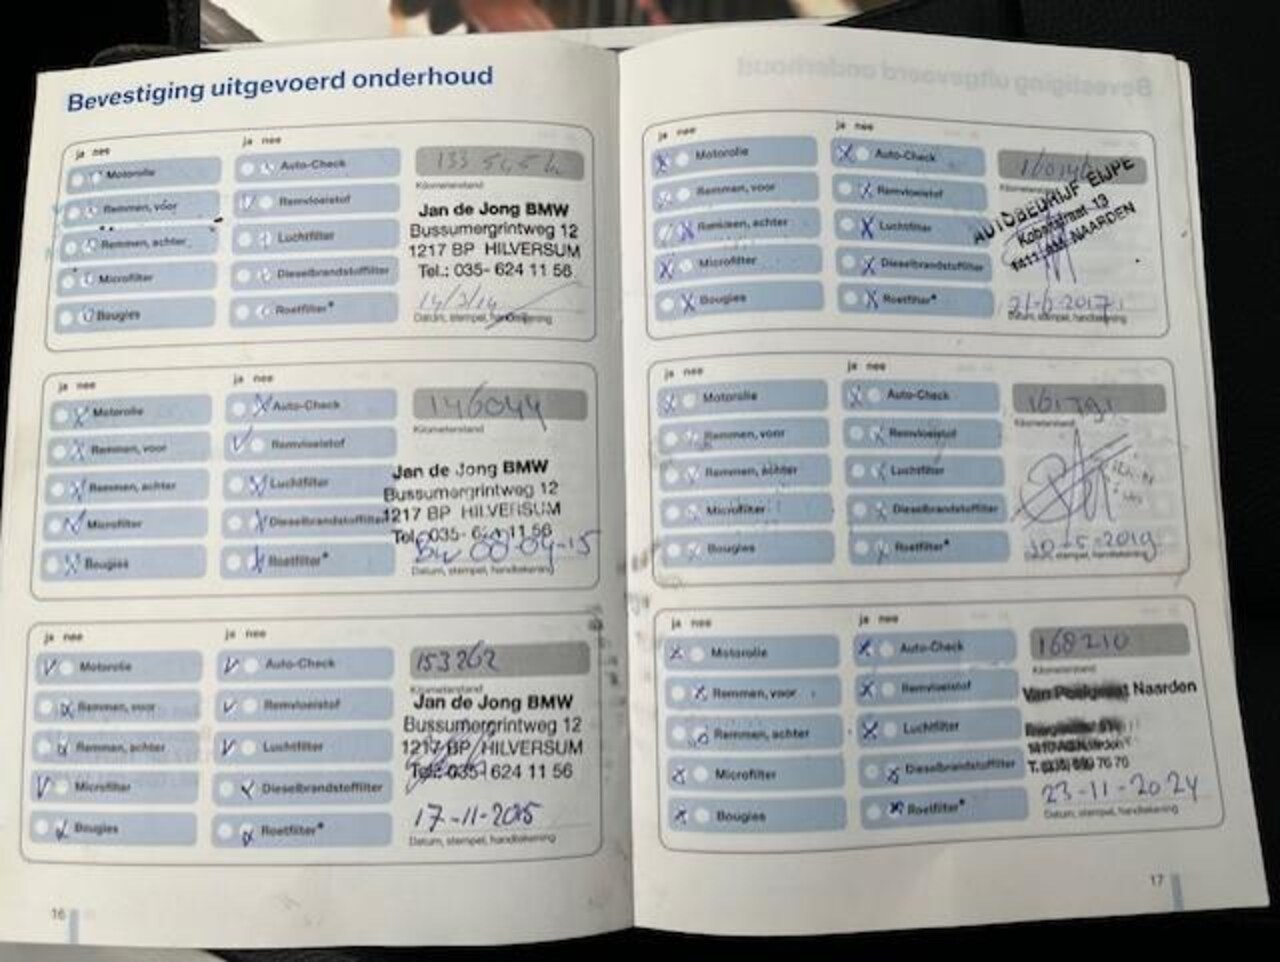 Bevestiging uitgevoerd onderhoud
ja nee
ja nee
Motorolie
Auto-Check
Remmen, voor
Remvloeistof
Remmen, achter
Luchtfilter
Microfilter
Dieselbrandstoffilter
Bougies
Roetfilter*
Kilometerstand
Jan de Jong BMW
Bussumergrintweg 12
1217 BP HILVERSUM
Tel.: 035- 624 11 56
14/3/14
Datum, stempel, handtekening
ja nee
ja nee
Motorolie
Auto-Check
Remmen, voor
Remvloeistof
Remmen, achter
Luchtfilter
Microfilter
Dieselbrandstoffilter
Bougies
Roetfilter*
146044
Kilometerstand
Jan de Jong BMW
Bussumergrintweg 12
1217 BP HILVERSUM
Tel.: 035- 624 11 56
08-04-15
Datum, stempel, handtekening
ja nee
ja nee
Motorolie
Auto-Check
Remmen, voor
Remvloeistof
Remmen, achter
Luchtfilter
Microfilter
Dieselbrandstoffilter
Bougies
Roetfilter*
153262
Kilometerstand
Jan de Jong BMW
Bussumergrintweg 12
1217 BP HILVERSUM
Tel.: 035- 624 11 56
17-11-2015
Datum, stempel, handtekening
16
ja nee
ja nee
Motorolie
Auto-Check
Remmen, voor
Remvloeistof
Remmen, achter
Luchtfilter
Microfilter
Dieselbrandstoffilter
Bougies
Roetfilter*
Kilometerstand
AUTOBEDRIJF EIJPE
13
NAARDEN
21-6-2017
Datum, stempel, handtekening
ja nee
ja nee
Motorolie
Auto-Check
Remmen, voor
Remvloeistof
Remmen, achter
Luchtfilter
Microfilter
Dieselbrandstoffilter
Bougies
Roetfilter*
161791
Kilometerstand
-5-2019
Datum, stempel, handtekening
ja nee
ja nee
Motorolie
Auto-Check
Remmen, voor
Remvloeistof
Remmen, achter
Luchtfilter
Microfilter
Dieselbrandstoffilter
Bougies
Roetfilter*
168210
Kilometerstand
Van Naarden
23-11-2024
Datum, stempel, handtekening
17